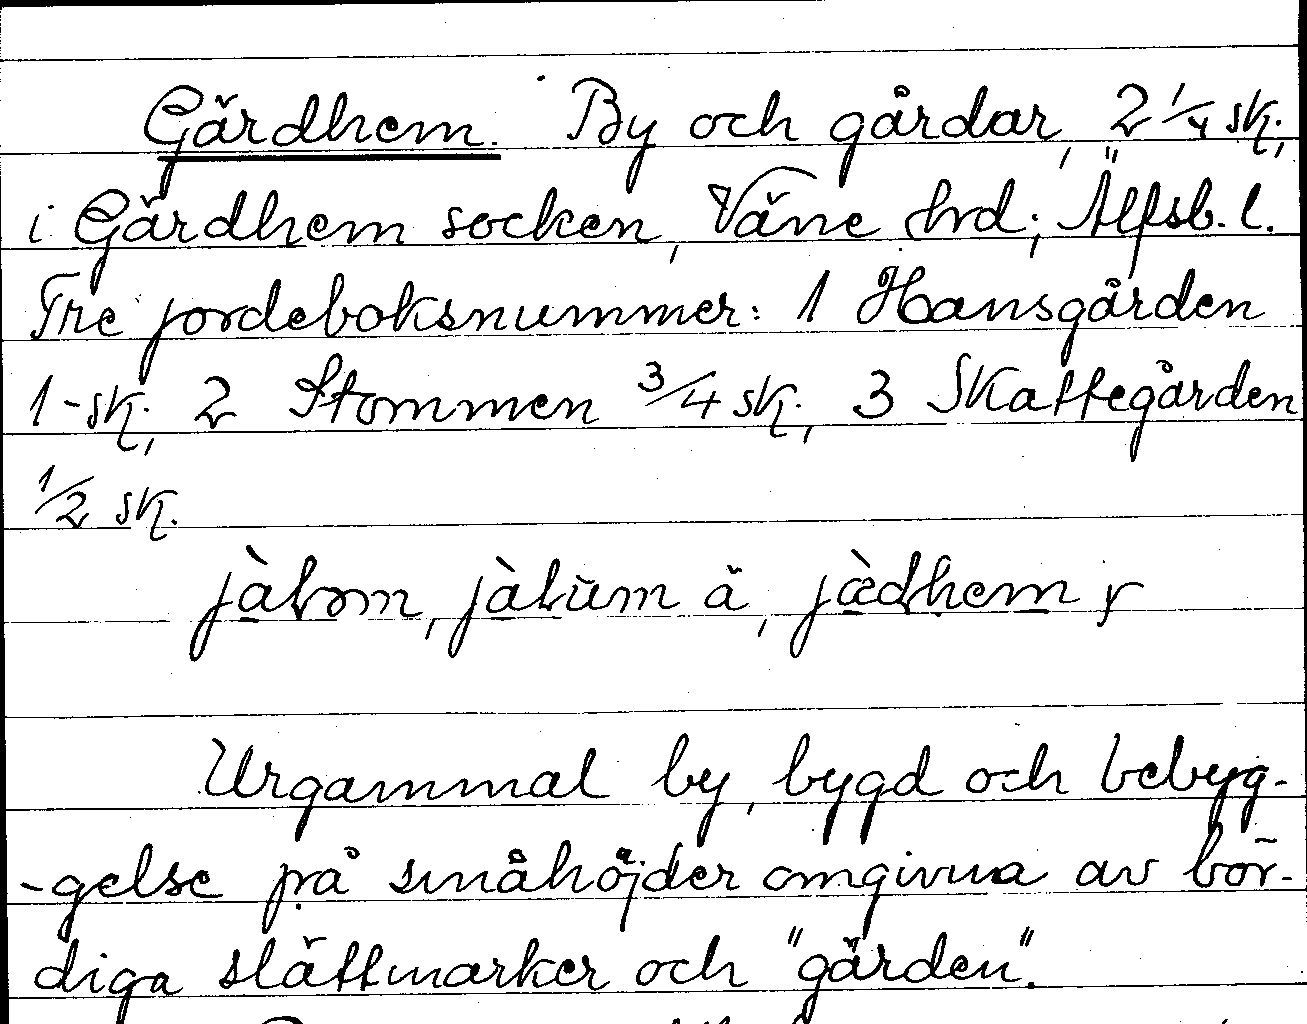 Gärdhem. By och gårdar, 2 1/4 sk.,
i Gärdhem socken, Väne hrd; Älfsb. l.
Tre jordeboksnummer: 1 Hansgården
1 - sk., 2 Stommen 3/4 sk., 3 Skattegården
1/2 sk.
jàlom, jàlŭm ä, jæ̀dhem y
Urgammal by, bygd och bebyg-
-gelse på småhöjder omgivna av bör-
diga slättmarker och "gärden".